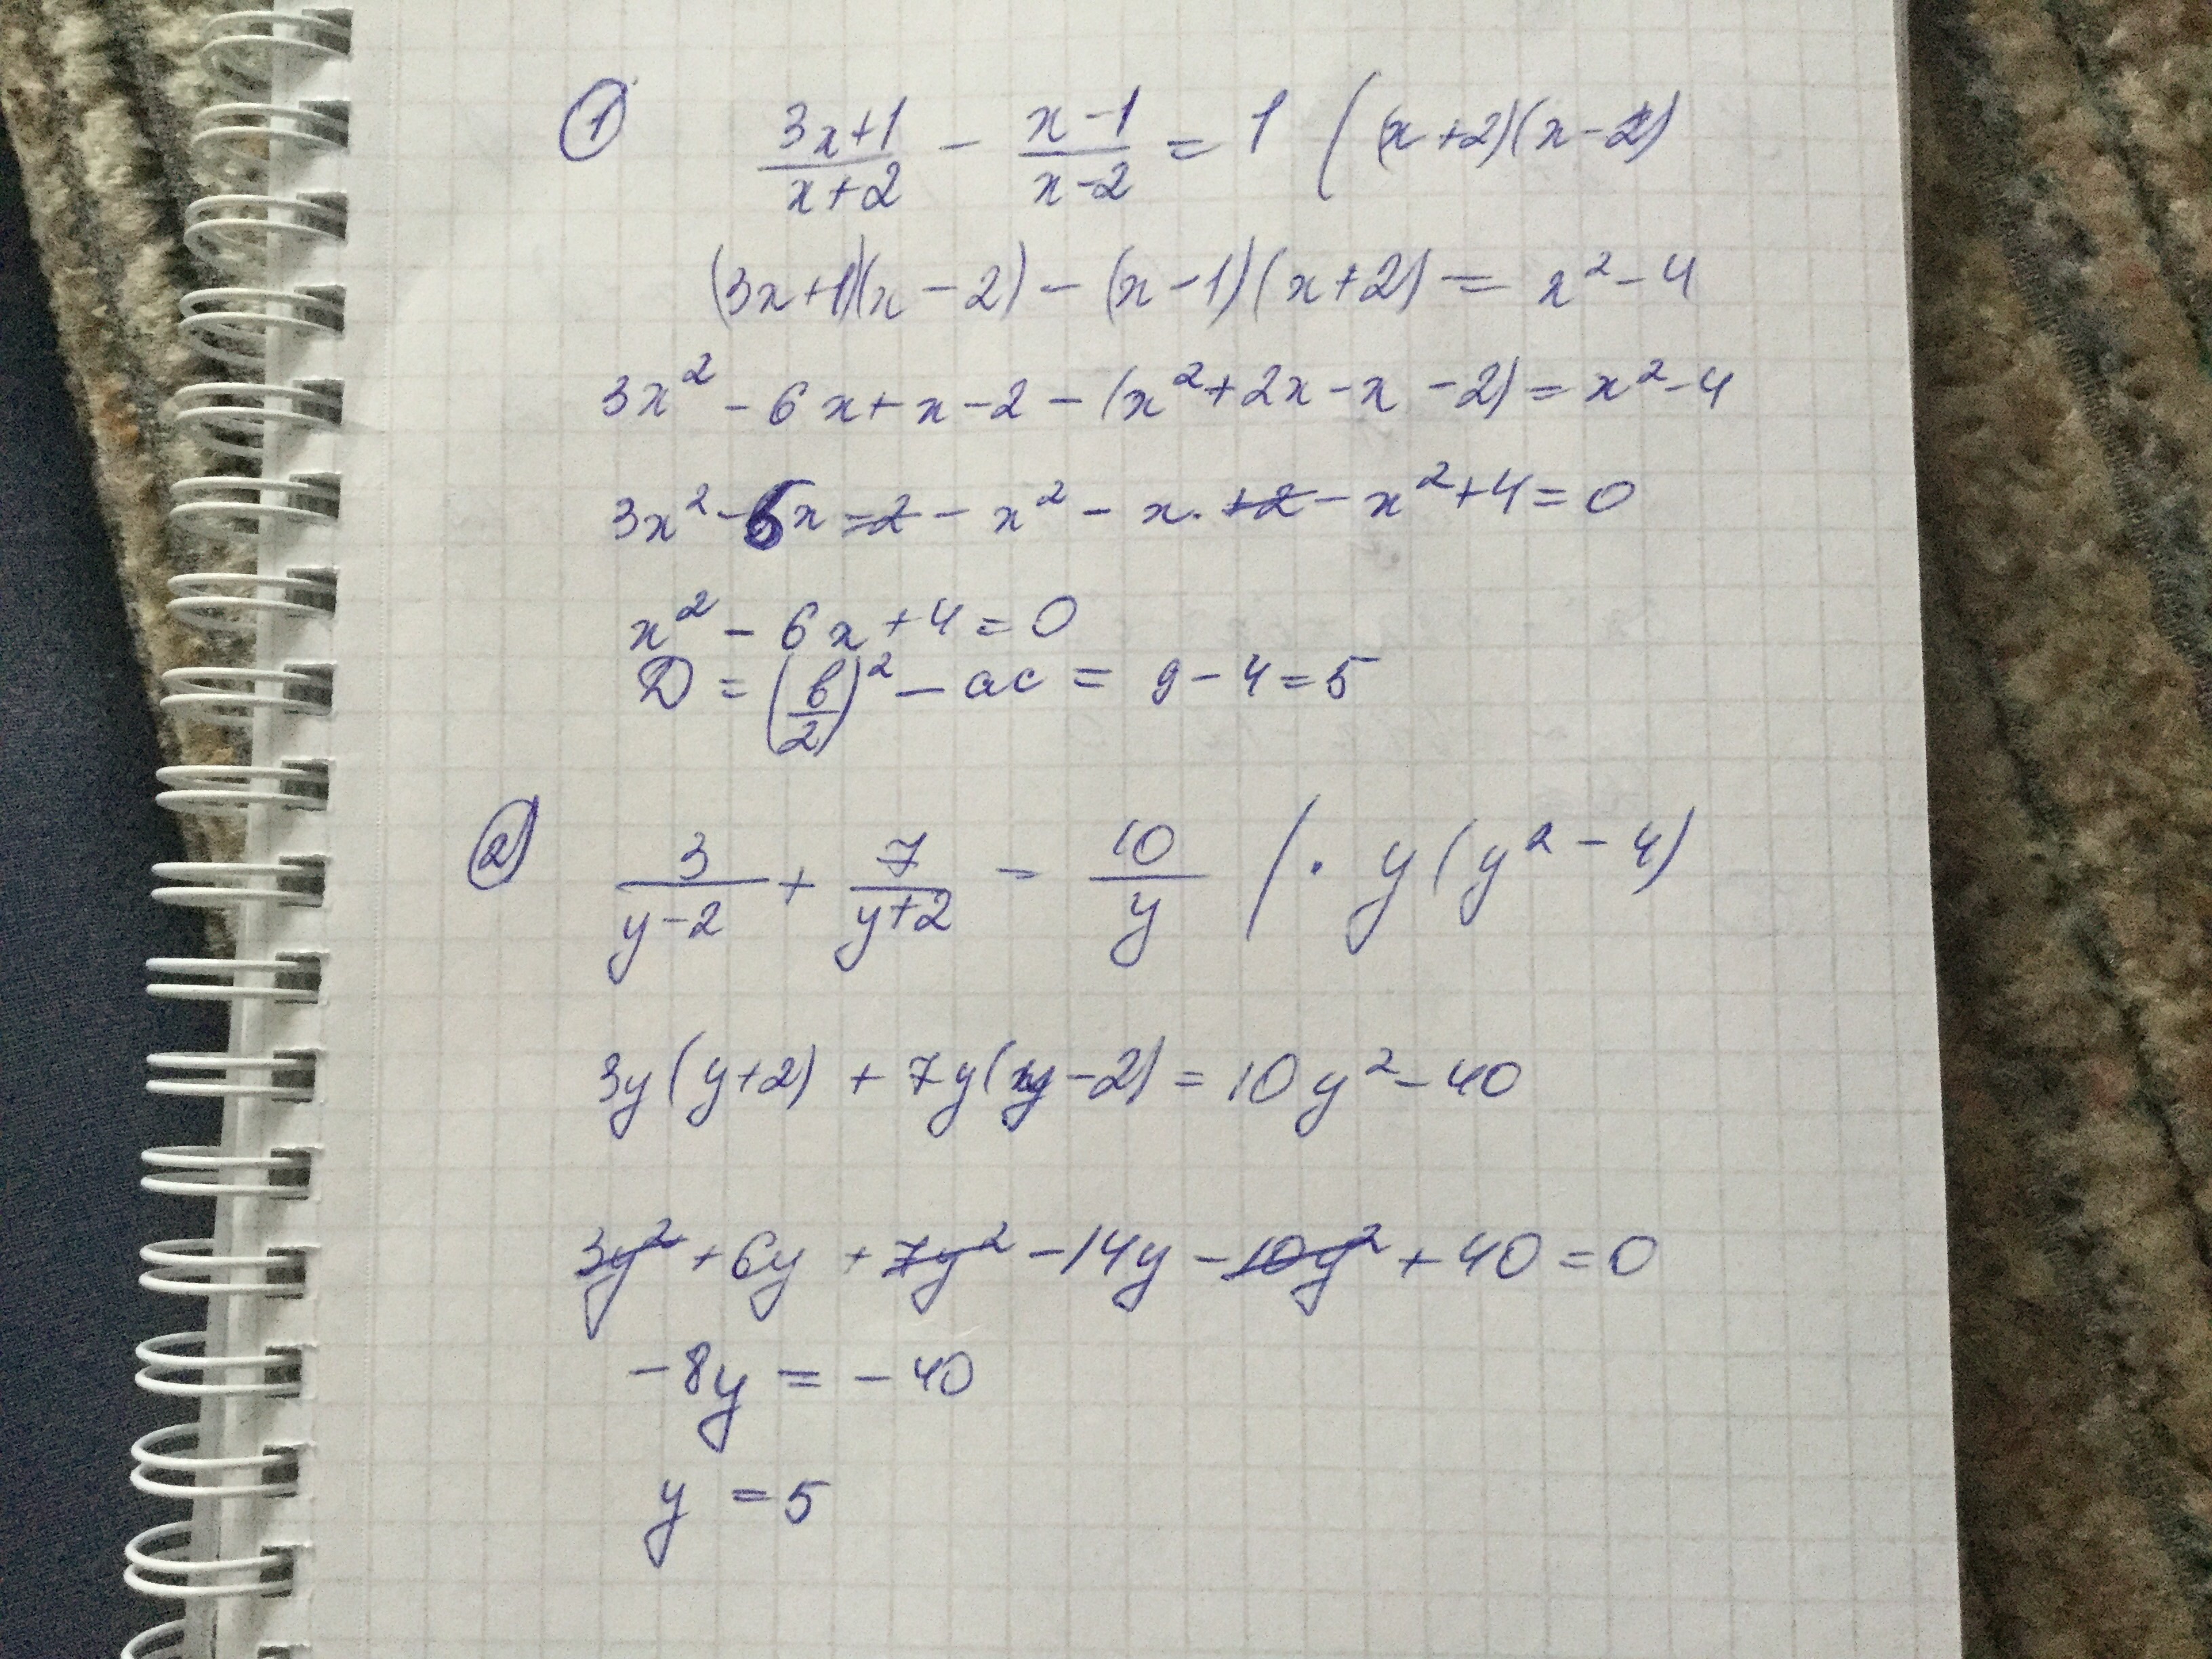 ① (3x+1)/(x+2) - (x-1)/(x-2) = 1 / (x+2)(x-2)
(3x+1)(x-2) - (x-1)(x+2) = x² - 4
3x² - 6x + x - 2 - (x² + 2x - x - 2) = x² - 4
3x² - 5x - 2 - x² - x + 2 - x² + 4 = 0
x² - 6x + 4 = 0
D = (b/2)² - ac = 9 - 4 = 5
② 3/(y-2) + 7/(y+2) = 10/y / · y(y² - 4)
3y(y+2) + 7y(y-2) = 10y² - 40
3y² + 6y + 7y² - 14y - 10y² + 40 = 0
-8y = -40
y = 5